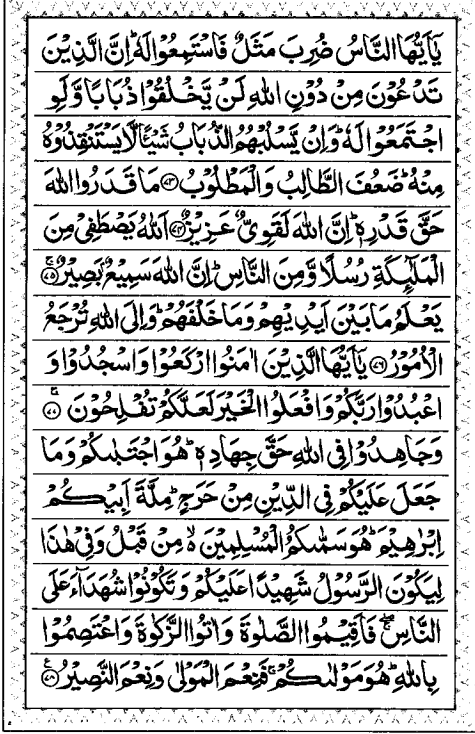 يٰۤاَيُّهَا النَّاسُ ضُرِبَ مَثَلٌ فَاسْتَمِعُوْا لَهٗ ؕ اِنَّ الَّذِيْنَ
تَدْعُوْنَ مِنْ دُوْنِ اللّٰهِ لَنْ يَّخْلُقُوْا ذُبَابًا وَّلَوِ
اجْتَمَعُوْا لَهٗ ؕ وَاِنْ يَّسْلُبْهُمُ الذُّبَابُ شَيْـًٔا لَّا يَسْتَنْقِذُوْهُ
مِنْهُ ؕ ضَعُفَ الطَّالِبُ وَالْمَطْلُوْبُ ﴿۷۳﴾ مَا قَدَرُوا اللّٰهَ
حَقَّ قَدْرِهٖ ؕ اِنَّ اللّٰهَ لَقَوِىٌّ عَزِيْزٌ ﴿۷۴﴾ اَللّٰهُ يَصْطَفِىْ مِنَ
الْمَلٰٓئِكَةِ رُسُلًا وَّمِنَ النَّاسِ ؕ اِنَّ اللّٰهَ سَمِيْعٌۢ بَصِيْرٌ ﴿۷۵﴾
يَعْلَمُ مَا بَيْنَ اَيْدِيْهِمْ وَمَا خَلْفَهُمْ ؕ وَاِلَى اللّٰهِ تُرْجَعُ
الْاُمُوْرُ ﴿۷۶﴾ يٰۤاَيُّهَا الَّذِيْنَ اٰمَنُوا ارْكَعُوْا وَاسْجُدُوْا وَ
اعْبُدُوْا رَبَّكُمْ وَافْعَلُوا الْخَيْرَ لَعَلَّكُمْ تُفْلِحُوْنَ ﴿۷۷﴾
وَجَاهِدُوْا فِى اللّٰهِ حَقَّ جِهَادِهٖ ؕ هُوَ اجْتَبٰىكُمْ وَمَا
جَعَلَ عَلَيْكُمْ فِى الدِّيْنِ مِنْ حَرَجٍ ؕ مِلَّةَ اَبِيْكُمْ
اِبْرٰهِيْمَ ؕ هُوَ سَمّٰىكُمُ الْمُسْلِمِيْنَ ۙ مِنْ قَبْلُ وَفِىْ هٰذَا
لِيَكُوْنَ الرَّسُوْلُ شَهِيْدًا عَلَيْكُمْ وَتَكُوْنُوْا شُهَدَآءَ عَلَى
النَّاسِ ۖۚ فَاَقِيْمُوا الصَّلٰوةَ وَاٰتُوا الزَّكٰوةَ وَاعْتَصِمُوْا
بِاللّٰهِ ؕ هُوَ مَوْلٰىكُمْ ۚ فَنِعْمَ الْمَوْلٰى وَنِعْمَ النَّصِيْرُ ﴿۷۸﴾